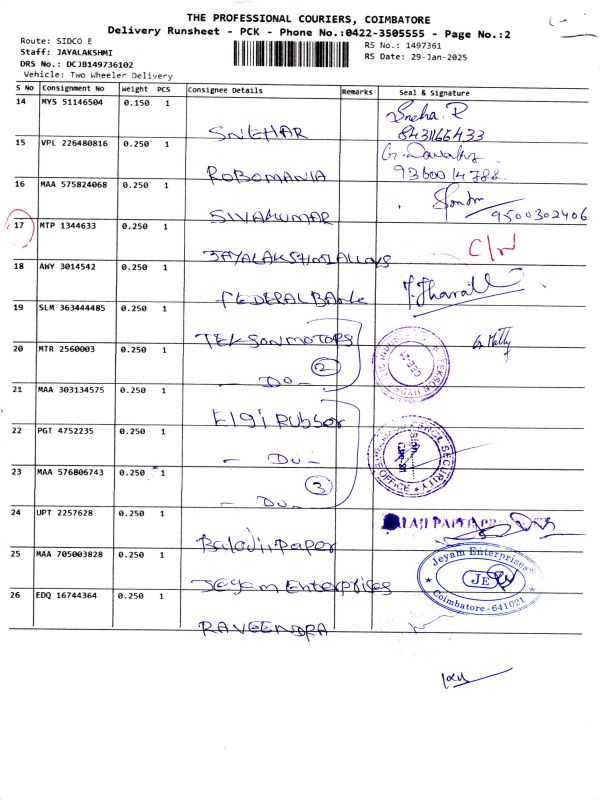 THE PROFESSIONAL COURIERS, COIMBATORE
Delivery Runsheet - PCK - Phone No.:0422-3505555 - Page No.:2
Route: SIDCO E
Staff: JAYALAKSHMI
DRS No.: DCJB149736102
Vehicle: Two Wheeler Delivery
RS No.: 1497361
RS Date: 29-Jan-2025
S No Consignment No Weight PCS Consignee Details Remarks Seal & Signature
14 MYS 51146504 0.150 1 SNEHAR Sneha.R
8431166433
15 VPL 226480816 0.250 1 ROBOMANIA
9360014788
16 MAA 575824068 0.250 1 SIVAKUMAR 9500302406
17 MTP 1344633 0.250 1 JAYALAKSHMI ALLOYS
18 AWY 3014542 0.250 1 FEDERAL BANK
19 SLM 363444485 0.250 1 TEKSON MOTORS
20 MTR 2560003 0.250 1 - Do - 2
21 MAA 303134575 0.250 1 Elgi Rubber
22 PGT 4752235 0.250 1 - Do -
23 MAA 576806743 0.250 1 - Do - 3
SECURITY
OFFICE
24 UPT 2257628 0.250 1 Balaji Paper
25 MAA 705003828 0.250 1 Jeyam Enterprises
Jeyam Enterprises
JE
Coimbatore - 641021
26 EDQ 16744364 0.250 1 RAVEENDRA